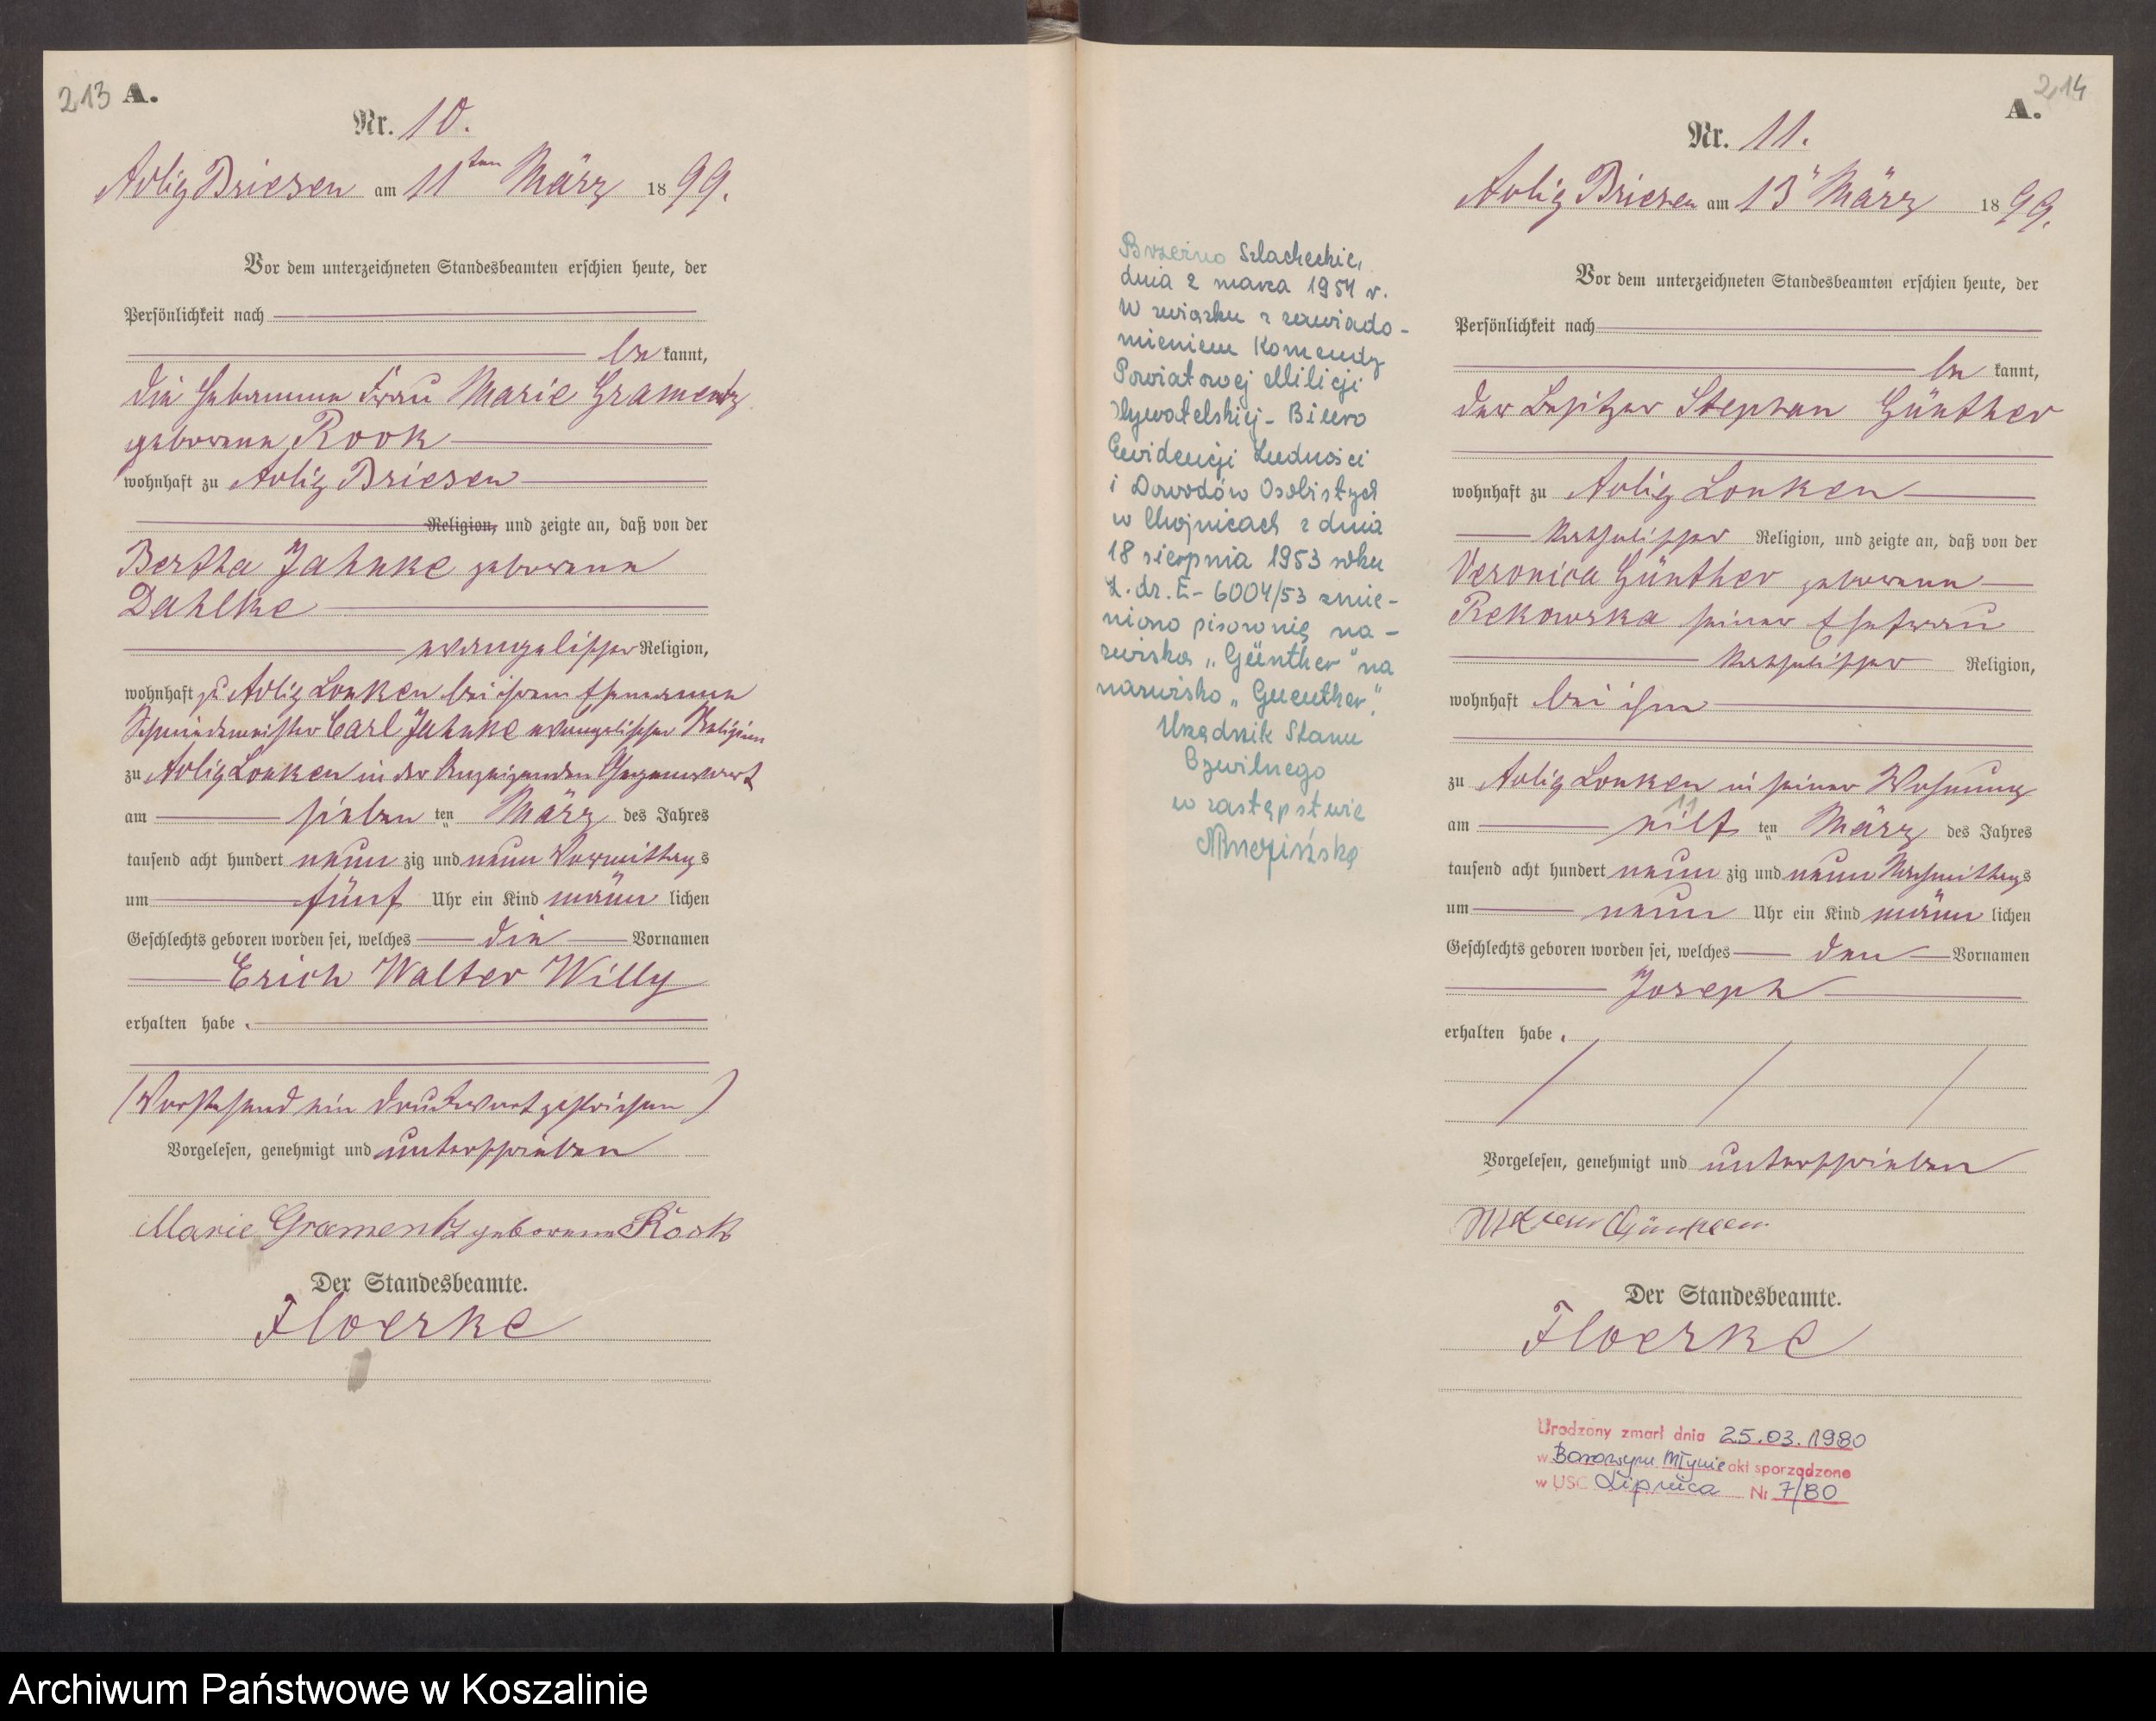 213 A.
Nr. 10.
Adlig Briesen am 11ten März 1899.
Vor dem unterzeichneten Standesbeamten erschien heute, der
Persönlichkeit nach
be kannt,
die Hebamme Frau Marie Gramentz
geborene Rook
wohnhaft zu Adlig Briesen
Religion, und zeigte an, daß von der
Bertha Jahnke geborene
Dahlke
evangelischer Religion,
wohnhaft zu Adlig Lonken bei ihrem Ehemanne
Schmiedemeister Carl Jahnke evangelischer Religion
zu Adlig Lonken in der Anzeigenden Gegenwart
am sieben ten März des Jahres
tausend acht hundert neun zig und neun Vormittags
um fünf Uhr ein Kind männ lichen
Geschlechts geboren worden sei, welches die Vornamen
Erich Walter Willy
erhalten habe.
(Vorstehend ein Druckwort gestrichen)
Vorgelesen, genehmigt und unterschrieben
Marie Gramentz geborene Rook
Der Standesbeamte.
Floerke
214
A.
Nr. 11.
Adlig Briesen am 13" März 1899.
Vor dem unterzeichneten Standesbeamten erschien heute, der
Persönlichkeit nach
be kannt,
der Besitzer Stephan Günther
wohnhaft zu Adlig Lonken
katholischer Religion, und zeigte an, daß von der
Veronica Günther geborene
Rekowska seiner Ehefrau
katholischer Religion,
wohnhaft bei ihm
zu Adlig Lonken in seiner Wohnung
11
am eilf ten März des Jahres
tausend acht hundert neun zig und neun Nachmittags
um neun Uhr ein Kind männ lichen
Geschlechts geboren worden sei, welches den Vornamen
Joseph
erhalten habe.
Vorgelesen, genehmigt und unterschrieben
Der Standesbeamte.
Floerke
Brzeźno Szlacheckie,
dnia 2 marca 1954 r.
W związku z zawiado-
mieniem Komendy
Powiatowej Milicji
Obywatelskiej - Biuro
Ewidencji Ludności
i Dowodów Osobistych
w Chojnicach z dnia
18 sierpnia 1953 roku
L. dz. E - 6004/53 zmie-
niono pisownię na-
zwiska „Günther" na
nazwisko „Guenther".
Urzędnik Stanu
Cywilnego
w zastępstwie
Urodzony zmarł dnia 25.03.1980
w Borowym Młynie akt sporządzono
w USC Lipnica Nr 7/80
Archiwum Państwowe w Koszalinie